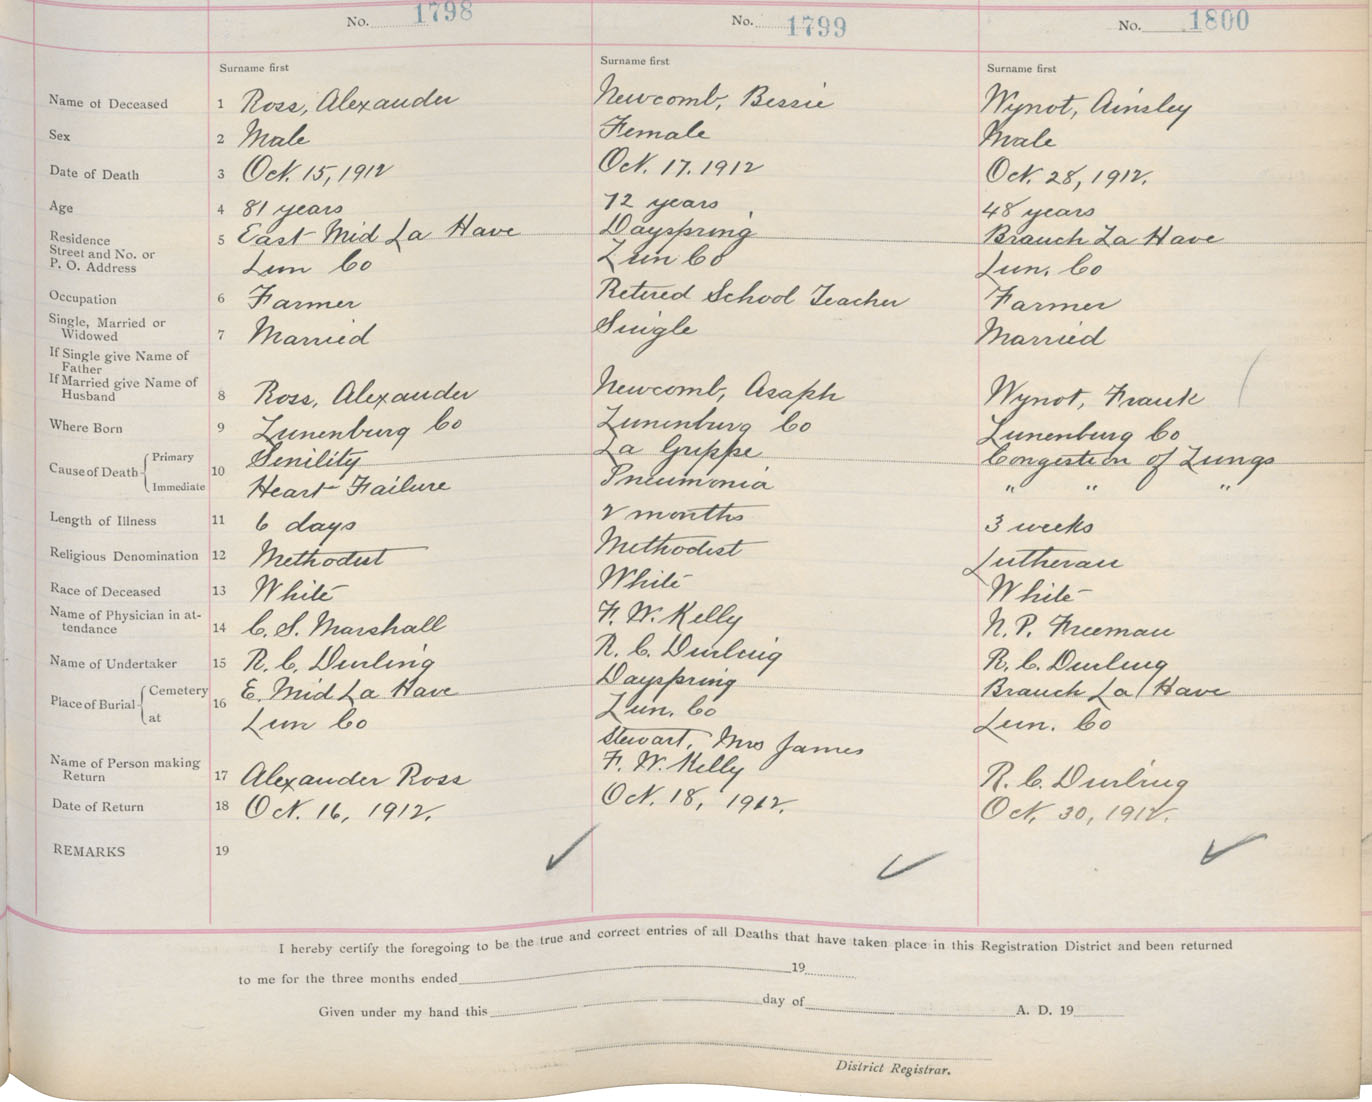 No. 1798 No. 1799 No. 1800
Surname first Surname first Surname first
Name of Deceased 1 Ross, Alexander Newcomb, Bessie Wynot, Ainsley
Sex 2 Male Female Male
Date of Death 3 Oct. 15, 1912 Oct. 17. 1912 Oct. 28, 1912.
Age 4 81 years 72 years 48 years
Residence 5 East Mid La Have Dayspring Branch La Have
Street and No. or
P. O. Address Lun Co Lun Co Lun. Co
Occupation 6 Farmer Retired School Teacher Farmer
Single, Married or
Widowed 7 Married Single Married
If Single give Name of
Father
If Married give Name of
Husband 8 Ross, Alexander Newcomb, Asaph Wynot, Frank
Where Born 9 Lunenburg Co Lunenburg Co Lunenburg Co
Cause of Death 10 Primary Senility La Grippe Congestion of Lungs
Immediate Heart Failure Pneumonia " " "
Length of Illness 11 6 days 2 months 3 weeks
Religious Denomination 12 Methodist Methodist Lutheran
Race of Deceased 13 White White White
Name of Physician in at-
tendance 14 C. S. Marshall F. W. Kelly N. P. Freeman
Name of Undertaker 15 R. C. Durling R. C. Durling R. C. Durling
Place of Burial 16 Cemetery E. Mid La Have Dayspring Branch La Have
at Lun Co Lun. Co Lun. Co
Stewart, Mrs James
Name of Person making
Return 17 Alexander Ross F. W. Kelly R. C. Durling
Date of Return 18 Oct. 16, 1912. Oct. 18, 1912. Oct. 30, 1912.
REMARKS 19
I hereby certify the foregoing to be the true and correct entries of all Deaths that have taken place in this Registration District and been returned
to me for the three months ended 19
Given under my hand this day of A. D. 19
District Registrar.